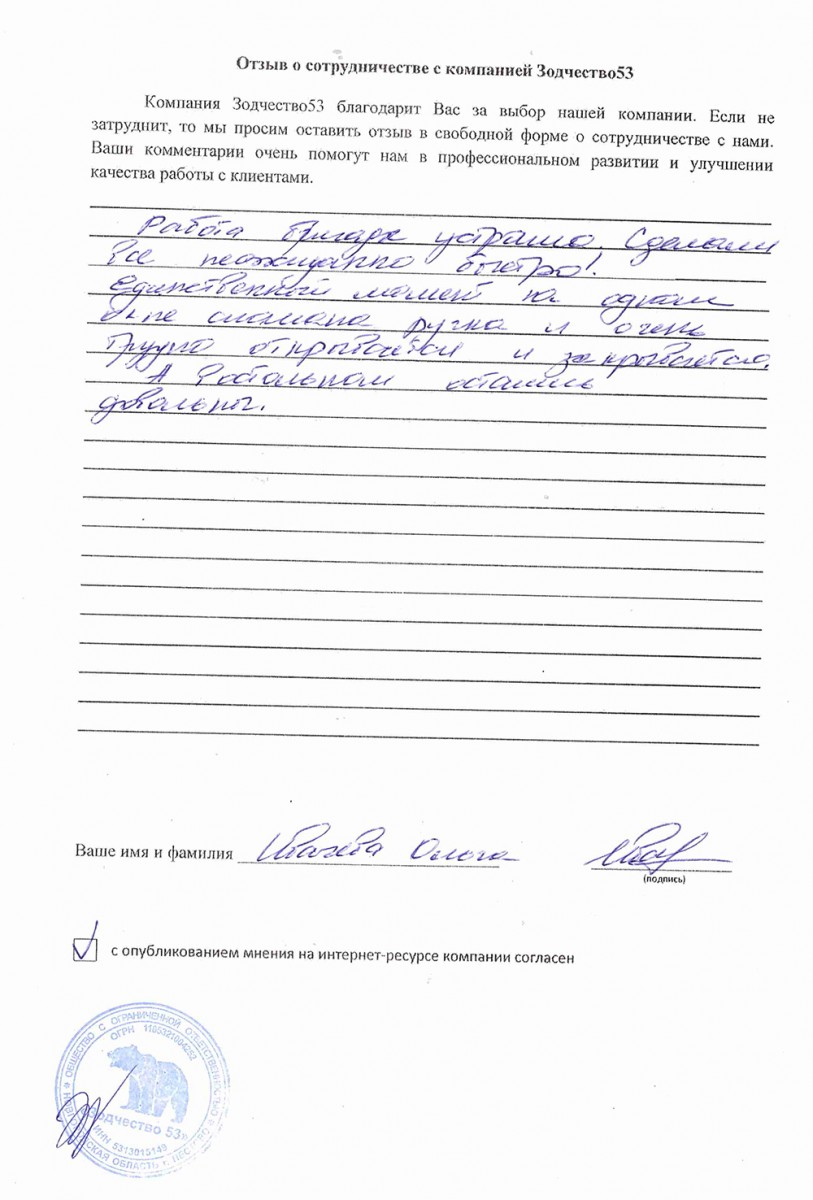 Отзыв о сотрудничестве с компанией Зодчество53
Компания Зодчество53 благодарит Вас за выбор нашей компании. Если не
затруднит, то мы просим оставить отзыв в свободной форме о сотрудничестве с нами.
Ваши комментарии очень помогут нам в профессиональном развитии и улучшении
качества работы с клиентами.
Работа бригады устроила. Сделали
все неожиданно быстро!
Единственный момент на одном
окне сломана ручка и очень
трудно открывается и закрывается.
А востальном остались
довольны.
Ваше имя и фамилия Ольга
(подпись)
с опубликованием мнения на интернет-ресурсе компании согласен
ОБЩЕСТВО С ОГРАНИЧЕННОЙ ОТВЕТСТВЕННОСТЬЮ
ОГРН
«Зодчество 53»
ИНН 5313015149
ОБЛАСТЬ г.